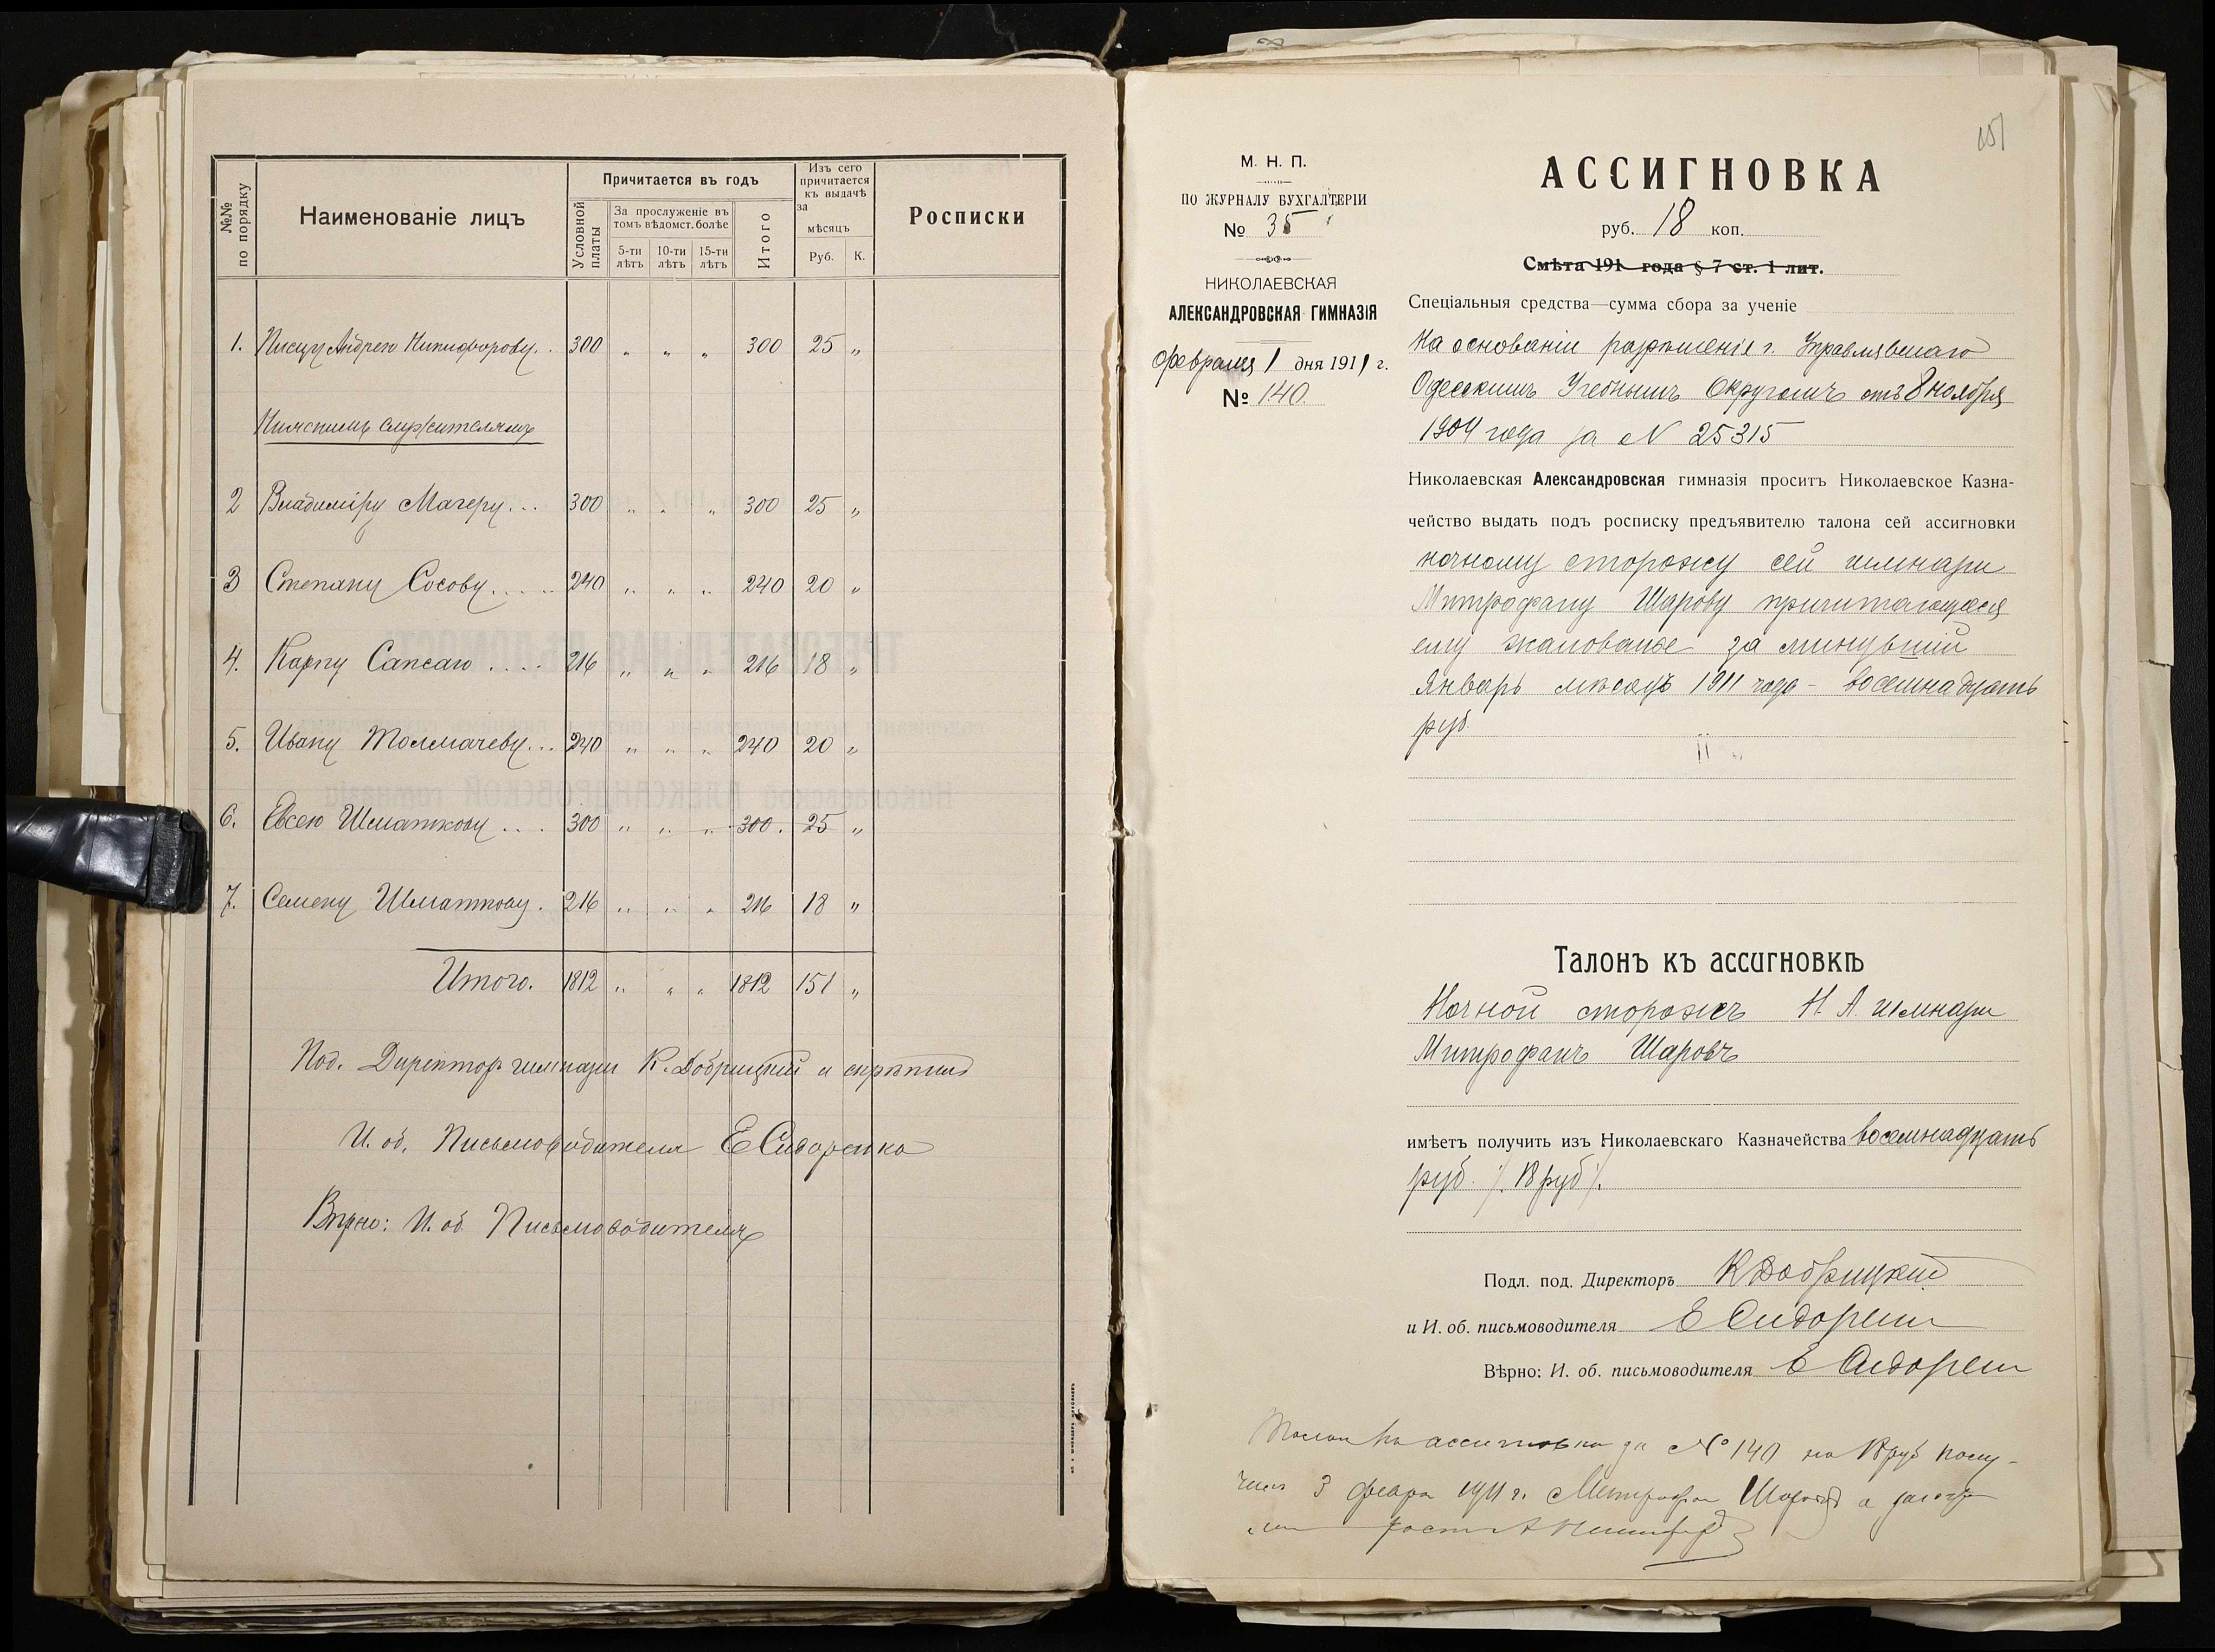 №№ по порядку
Наименованіе лицъ
Причитается въ годъ
Условной платы
За прослуженіе въ
томъ вѣдомст. болѣе
5-ти лѣтъ
10-ти лѣтъ
15-ти лѣтъ
Итого
Изъ сего
причитается
къ выдачѣ
за
мѣсяцъ
Руб. К.
Росписки
1. Писцу Андрею Никифорову . . 300 „ „ „ 300 25 „
Нижнимъ служителямъ
2 Владиміру Магеру . . . 300 „ „ „ 300 25 „
3 Степану Сосову . . . . 240 „ „ „ 240 20 „
4. Карпу Сапсаю . . . . 216 „ „ „ 216 18 „
5. Ивану Толмачеву . . . 240 „ „ „ 240 20 „
6. Евсею Шматкову . . . 300 „ „ „ 300. 25 „
7. Семену Шматкову . 216 „ „ „ 216 18 „
Итого. 1812 „ „ „ 1812 151 „
Под. Директоръ гимназіи К. Добрицкій и скрѣпилъ
И. об. Письмоводителя Е Сидоренко
Вѣрно: И. об. Письмоводителя
М. Н. П.
ПО ЖУРНАЛУ БУХГАЛТЕРІИ
№ 35
НИКОЛАЕВСКАЯ
АЛЕКСАНДРОВСКАЯ ГИМНАЗІЯ
февраля 1 дня 1911 г.
№ 140.
АССИГНОВКА
руб. 18 коп.
Смѣта 191 года § 7 ст. 1 лит.
Спеціальныя средства—сумма сбора за ученіе
На основаніи разрѣшенія г. Управлявшаго
Одесскимъ Учебнымъ Округомъ отъ 8 ноября
1904 года за N 25315
Николаевская Александровская гимназія проситъ Николаевское Казна-
чейство выдать подъ росписку предъявителю талона сей ассигновки
ночному сторожу сей гимназіи
Митрофану Шарову причитающееся
ему жалованье за минувшій
Январь мѣсяцъ 1911 года - восемнадцать
руб.
Талонъ къ ассигновкѣ
Ночной сторожъ Н. А. гимназіи
Митрофанъ Шаровъ
имѣетъ получить изъ Николаевскаго Казначейства восемнадцать
руб. /. 18 руб /.
Подл. под. Директоръ К Добрицкій
и И. об. письмоводителя Е Сидорен
Вѣрно: И. об. письмоводителя Е Сидорен
Талон къ ассигновки за № 140 на 18 руб полу-
чилъ 3 февра 1911 г. Митрофан Шаровъ а